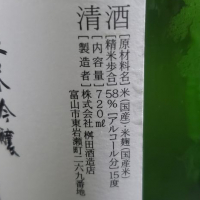 清酒
[原材料名]米(国産)・米麹(国産米)
[精米歩合]58%[アルコール分]15度
[内容量]720ml
[製造者]株式会社桝田酒造店
富山市東岩瀬町二六九番地
吟醸